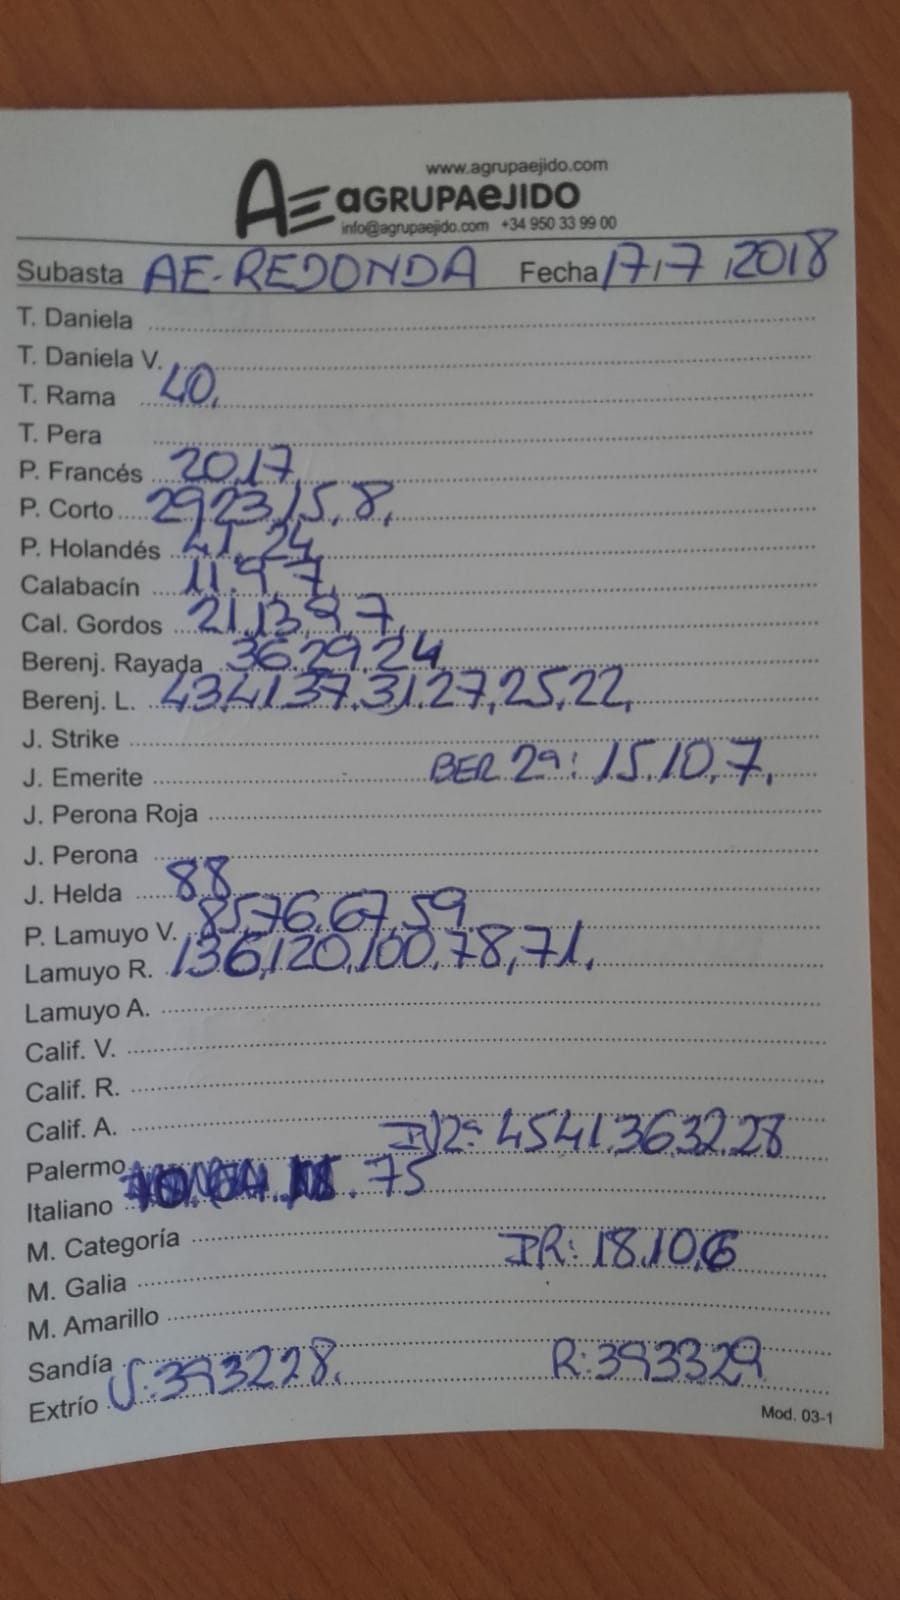 www.agrupaejido.com
AE aGRUPAeJIDO
info@agrupaejido.com +34 950 33 99 00
Subasta AE-REDONDA Fecha 17,7,2018
T. Daniela
T. Daniela V.
T. Rama 40,
T. Pera
P. Francés 20,17,
P. Corto 29,23,15,8,
P. Holandés 41,24,
Calabacín 11,9,7,
Cal. Gordos 21,13,9,7,
Berenj. Rayada 36,29,24
Berenj. L. 43,41,37,31,27,25,22,
J. Strike
J. Emerite BER 2ª: 15,10,7,
J. Perona Roja
J. Perona
J. Helda 88
P. Lamuyo V. 85,76,67,59
Lamuyo R. 136,120,100,78,71,
Lamuyo A.
Calif. V.
Calif. R.
Calif. A.
Palermo 2ª 45,41,36,32,28
Italiano 75
M. Categoría
M. Galia IR: 18,10,6
M. Amarillo
Sandía
Extrío V: 39,32,28, R: 39,33,29
Mod. 03-1